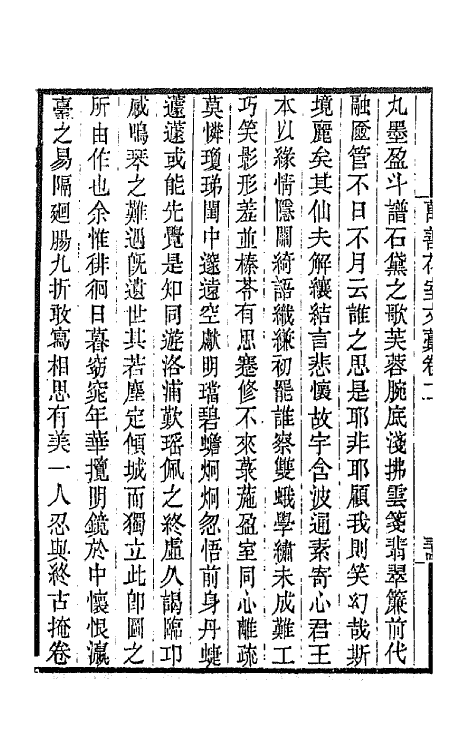 丸墨盈斗譜石黛之歌芙蓉腕底淺拂雲箋翡翠簾前代
融匳管不日不月云誰之思是耶非耶顧我則笑幻哉斯
境麗矣其仙夫解纕結言悲懷故宇含波通素寄心君王
本以緣情隱關綺語纖縑初罷誰察雙蛾學繡未成難工
巧笑影形羞並榛苓有思蹇修不來菉葹盈室同心離疏
莫憐瓊珶閨中邃遠空獻明璫碧蟾炯炯忽悟前身丹蜨
蘧蘧或能先覺是知同遊洛浦歎瑶佩之終虛久謁臨邛
感鳴琴之難遇旣遺世其若塵定傾城而獨立此卽圖之
所由作也余惟徘徊日暮窈窕年華攬明鏡於中懷恨瀛
臺之易隔廻腸九折敢寫相思有美一人忍與終古掩卷
萬善花室文藁卷二